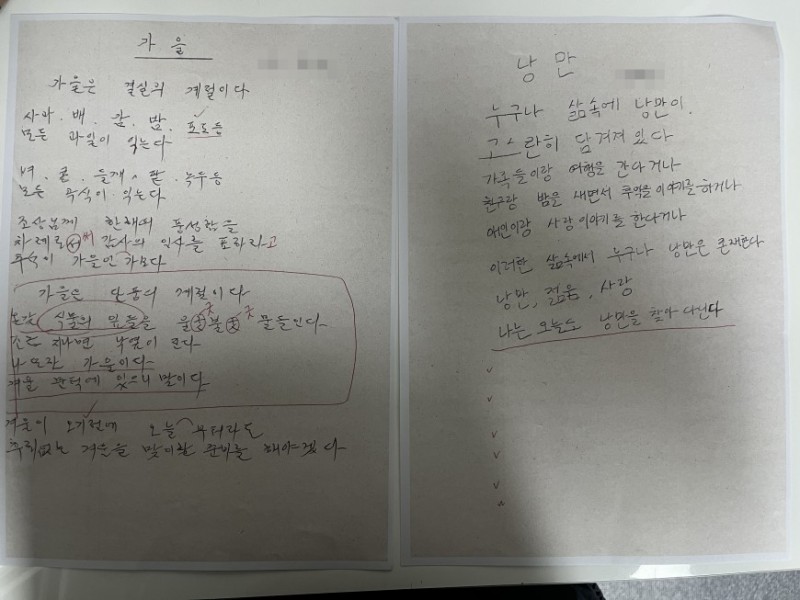 가 을
가을은 결실의 계절이다
사과. 배. 감. 밤. 포도등
모든 과일이 익는다
벼. 콩. 들깨. 팥. 녹두등
모든 곡식이 익는다
조상님께 한해의 풍성함을
차례로서 써 감사의 인사를 드리라고
추석이 가을인가보다
가을은 단풍의 계절이다
온갖 식물의 잎들을 울긋불긋 물들인다
조금 지나면 낙엽이 된다
나 또한 가을이다
겨울 문턱에 있으니 말이다
겨울이 오기전에 오늘부터라도
후회없는 겨울을 맞이할 준비를 해야겠다
낭 만
누구나 삶속에 낭만이.
고스란히 담겨져 있다
가족들이랑 여행을 간다거나
친구랑 밤을 새면서 추억을 이야기를 하거나
애인이랑 사랑이야기를 한다거나
이러한 삶속에서 누구나 낭만은 존재한다
낭만, 젊음, 사랑
나는 오늘도 낭만을 찾아 다닌다